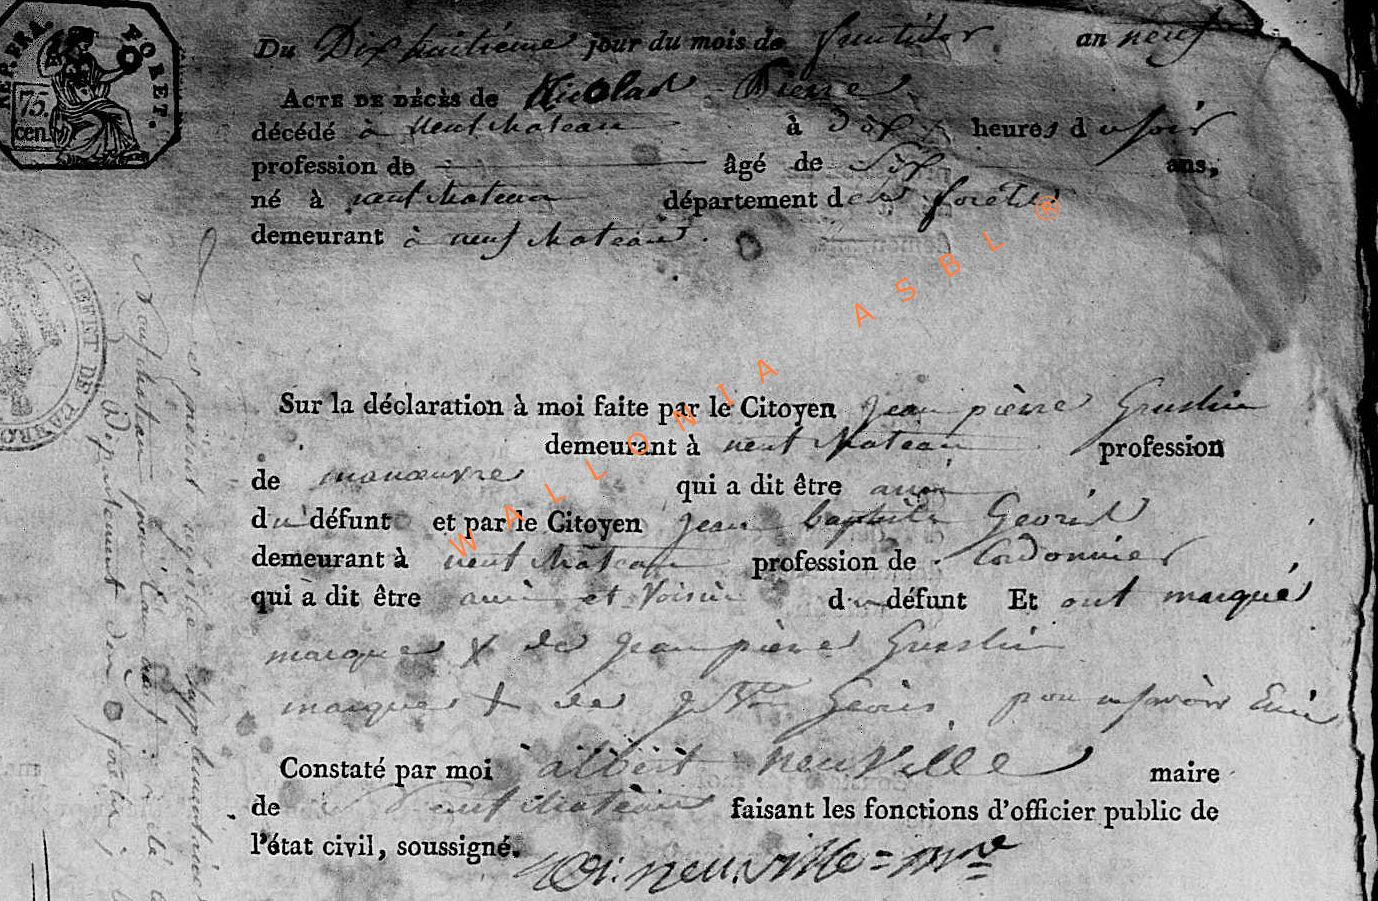 REP. FRA. FORET.
75. cen.
Du Dixhuitième jour du mois de fructidor an neuf
ACTE DE DÉCÈS de Nicolas Pierre
décédé à neufchateau à dix heures du soir
profession de âgé de Six ans,
né à neufchateau département des forêts
demeurant à neufchateau.
Sur la déclaration à moi faite par le Citoyen Jean pièrre
demeurant à neufchateau profession
de manœuvre qui a dit être ami
du défunt et par le Citoyen Jean baptiste
demeurant à neufchâteau profession de Cordonnier
qui a dit être ami et Voisin du défunt Et ont marqué
marque X de Jean pièrre
marque + de
Constaté par moi albert neuville maire
de neufchateau faisant les fonctions d'officier public de
l'état civil, soussigné.
neuville = mre
WALLONIA ASBL ®
présent registre supplementaire
neufchateau pour l'an neuf
département des forêts